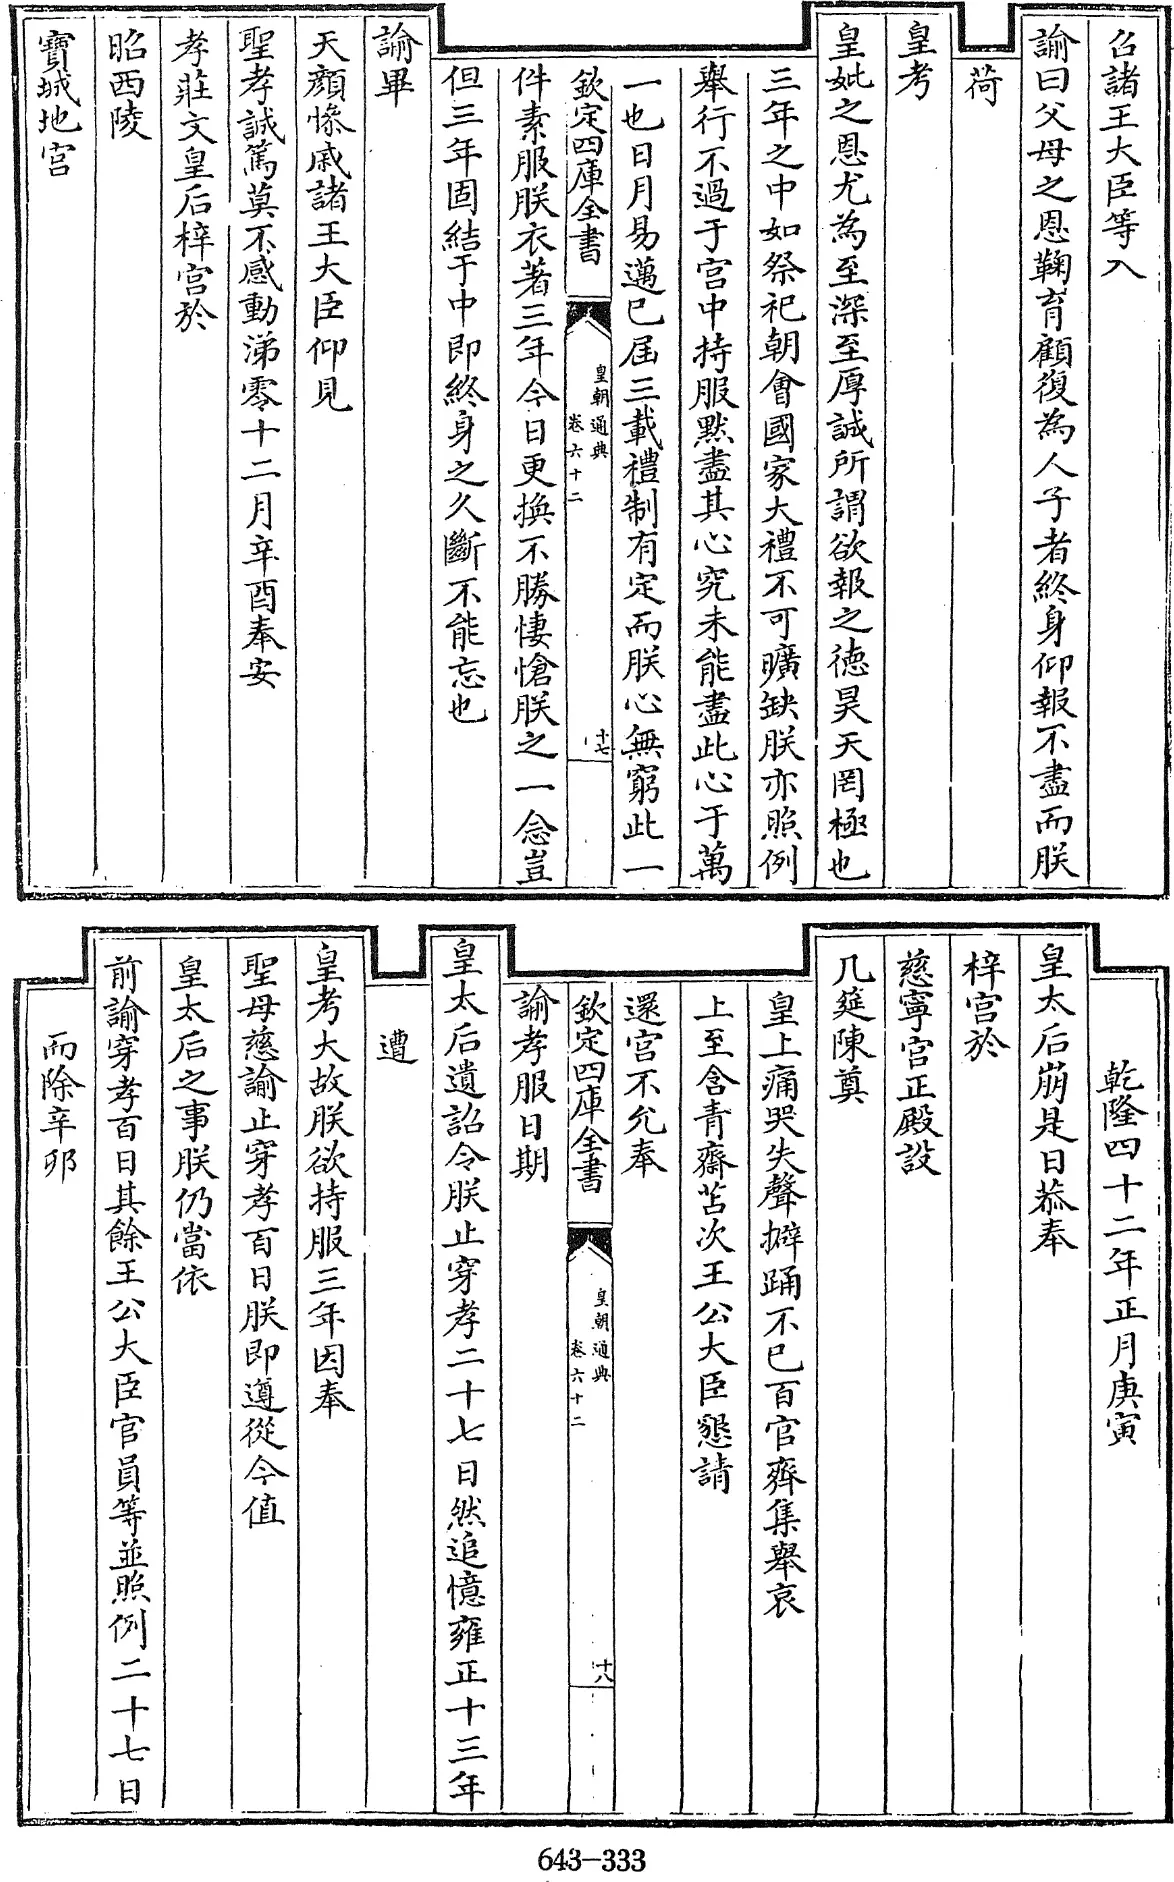 召諸王大臣等入
諭曰父母之恩鞠育顧復為人子者終身仰報不盡而朕
荷
皇考
皇妣之恩尤為至深至厚誠所謂欲報之徳昊天罔極也
三年之中如祭祀朝會國家大禮不可曠缺朕亦照例
舉行不過于宫中持服黙盡其心究未能盡此心于萬
一也日月易邁已届三載禮制有定而朕心無窮此一
欽定四庫全書
皇朝通典
卷六十二
十七
件素服朕衣著三年今日更換不勝悽愴朕之一念豈
但三年固結于中即終身之久斷不能忘也
諭畢
天顔慘戚諸王大臣仰見
聖孝誠篤莫不感動涕零十二月辛酉奉安
孝莊文皇后梓宫於
昭西陵
寶城地宫
乾隆四十二年正月庚寅
皇太后崩是日恭奉
梓宫於
慈寧宫正殿設
几筵陳奠
皇上痛哭失聲擗踊不已百官齊集舉哀
上至含青齋苫次王公大臣懇請
還宫不允奉
欽定四庫全書
皇朝通典
卷六十二
十八
諭孝服日期
皇太后遺詔令朕止穿孝二十七日然追憶雍正十三年
遭
皇考大故朕欲持服三年因奉
聖母慈諭止穿孝百日朕即遵從今值
皇太后之事朕仍當依
前諭穿孝百日其餘王公大臣官員等並照例二十七日
而除辛卯
643-333